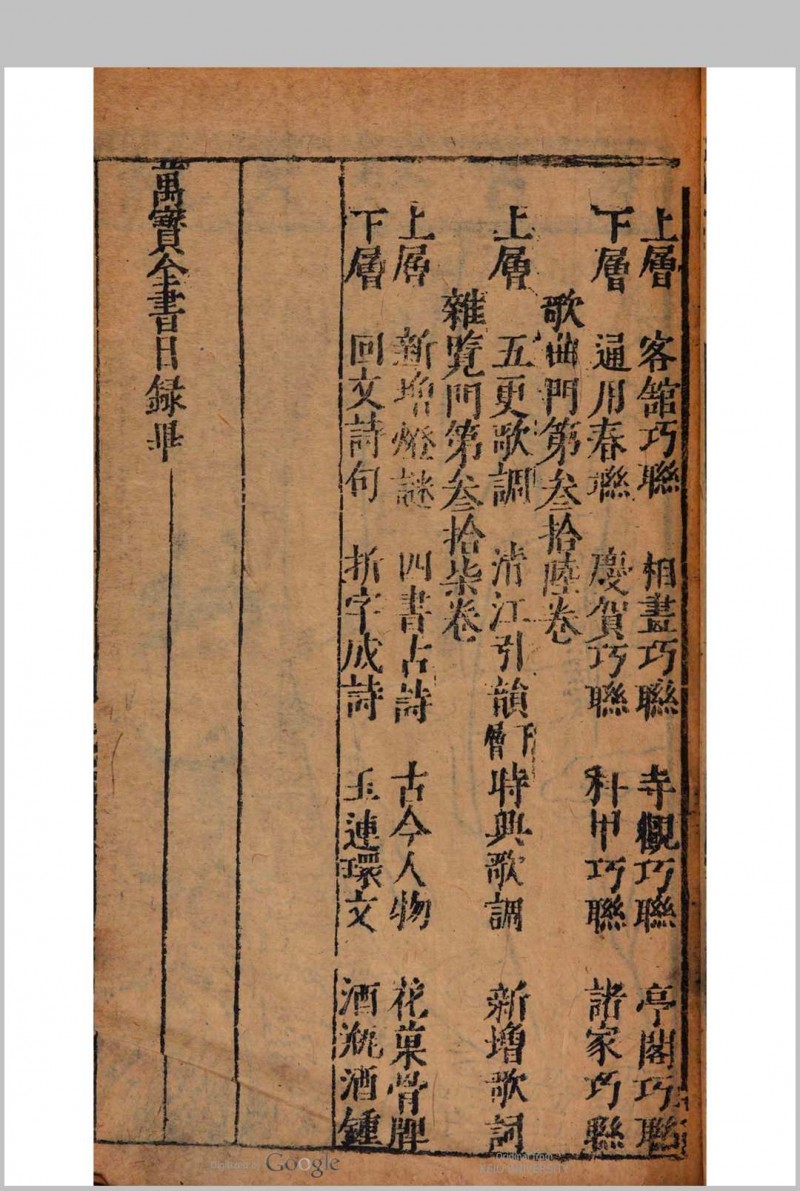 上層 客舘巧聯 相畫巧聯 寺觀巧聯 亭閣巧聯
下層 通用春聯 慶賀巧聯 科甲巧聯 諸家巧聯
歌曲門第叁拾陸卷
上層 五更歌調 清江引韻 下層 時興歌調 新增歌詞
雜覽門第叁拾柒卷
上層 新增燈謎 四書古詩 古今人物 花菓骨牌
下層 回文詩句 折字成詩 玉連環文 酒瓶酒鍾
萬寶全書目録畢
Digitized by Google
Original from
KEIO UNIVERSITY